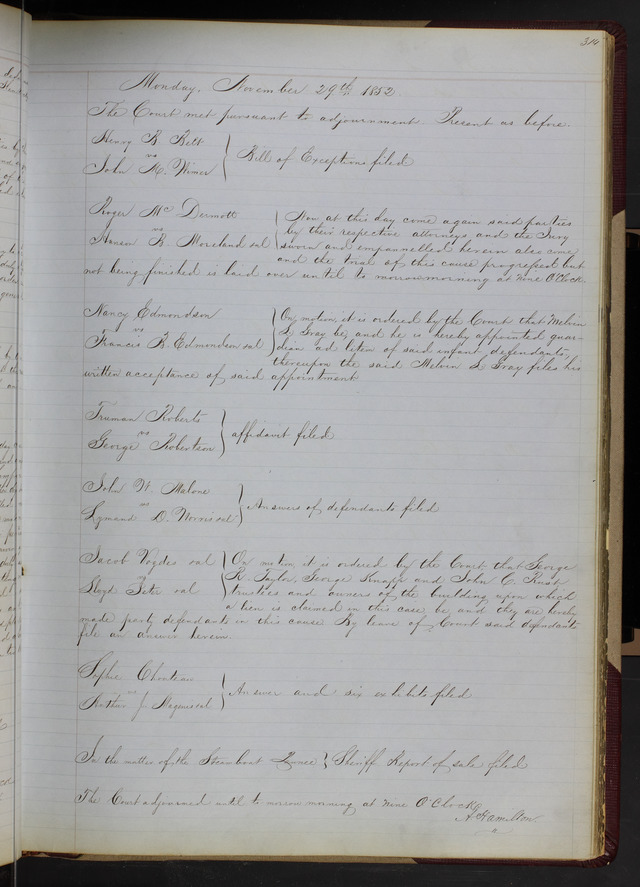 314
Monday, November 29th 1852.
The Court met pursuant to adjournment. Present as before.
Henry B. Belt
vs
John M. Wimer } Bill of Exceptions filed
Roger Mc Dermott
vs
Hanson B. Moreland et al { Now at this day come again said parties
by their respective attorneys and the Jury
sworn and empannelled herein also come
and the trial of this cause progressed but
not being finished is laid over until to morrow morning at nine O'Clock.
Nancy Edmondson
vs
Francis B. Edmondson et al } On motion, it is ordered by the Court that Melvin
L. Gray be, and he is hereby appointed guar-
dian ad litem of said infant defendants,
thereupon the said Melvin L Gray files his
written acceptance of said appointment
Truman Roberts
vs
George Robertson } affidavit filed
John W. Malone
vs
D. Norris et al } Answers of defendants filed
Jacob et al
Lloyd et al } On motion it is ordered by the Court that George
R. Taylor, George Knapp and John C. Rust
trustees and owners of the building upon which
a lien is claimed in this case be, and they are hereby
made party defendants in this cause By leave of Court said defendants
file an answer herein.
Sophie Chouteau
vs
Arthur J. Magenis et al } Answer and six exhibits filed
In the matter of the Steam boat } Sheriff Report of sale filed
The Court adjourned until to morrow morning at nine O'Clock
A Hamilton